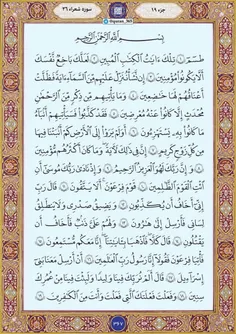 جزء ۱۹
سوره شعراء ۲۶
بِسْمِ اللَّهِ الرَّحْمَنِ الرَّحِيمِ
طسٓمٓ ۝۱ تِلْكَ ءَايَتُ الْكِتَبِ الْمُبِينِ ۝۲ لَعَلَّكَ بَخِعٌ نَّفْسَكَ
أَلَّا يَكُونُوا مُؤْمِنِينَ ۝۳ إِن نَّشَأْ نُنَزِّلْ عَلَيْهِم مِّنَ السَّمَآءِ ءَايَةً فَظَلَّتْ
أَعْنَقُهُمْ لَهَا خَضِعِينَ ۝۴ وَمَا يَأْتِيهِم مِّن ذِكْرٍ مِّنَ الرَّحْمَنِ
مُحْدَثٍ إِلَّا كَانُوا عَنْهُ مُعْرِضِينَ ۝۵ فَقَدْ كَذَّبُوا فَسَيَأْتِيهِمْ أَنْبَؤُا
مَا كَانُوا بِهِ يَسْتَهْزِءُونَ ۝۶ أَوَلَمْ يَرَوْا إِلَى الْأَرْضِ كَمْ أَنْبَتْنَا فِيهَا
مِن كُلِّ زَوْجٍ كَرِيمٍ ۝۷ إِنَّ فِي ذَلِكَ لَءَايَةً وَمَا كَانَ أَكْثَرُهُم مُّؤْمِنِينَ
۝۸ وَإِنَّ رَبَّكَ لَهُوَ الْعَزِيزُ الرَّحِيمُ ۝۹ وَإِذْ نَادَى رَبُّكَ مُوسَى أَنِ
ائْتِ الْقَوْمَ الظَّلِمِينَ ۝۱۰ قَوْمَ فِرْعَوْنَ أَلَا يَتَّقُونَ ۝۱۱ قَالَ رَبِّ
إِنِّي أَخَافُ أَن يُكَذِّبُونِ ۝۱۲ وَيَضِيقُ صَدْرِي وَلَا يَنطَلِقُ
لِسَانِي فَأَرْسِلْ إِلَى هَرُونَ ۝۱۳ وَلَهُمْ عَلَيَّ ذَنبٌ فَأَخَافُ أَن
يَقْتُلُونِ ۝۱۴ قَالَ كَلَّا فَاذْهَبَا بِءَايَتِنَا إِنَّا مَعَكُم مُّسْتَمِعُونَ ۝۱۵
فَأْتِيَا فِرْعَوْنَ فَقُولَا إِنَّا رَسُولُ رَبِّ الْعَلَمِينَ ۝۱۶ أَنْ أَرْسِلْ مَعَنَا بَنِي
إِسْرَءِيلَ ۝۱۷ قَالَ أَلَمْ نُرَبِّكَ فِينَا وَلِيدًا وَلَبِثْتَ فِينَا مِنْ عُمُرِكَ
سِنِينَ ۝۱۸ وَفَعَلْتَ فَعْلَتَكَ الَّتِي فَعَلْتَ وَأَنتَ مِنَ الْكَفِرِينَ ۝۱۹
۳۶۷